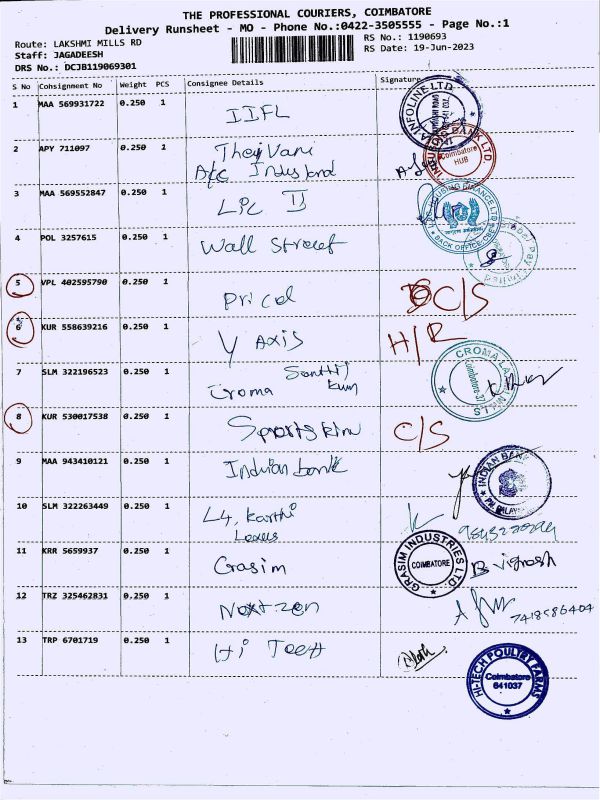 THE PROFESSIONAL COURIERS, COIMBATORE
Delivery Runsheet - MO - Phone No.:0422-3505555 - Page No.:1
Route: LAKSHMI MILLS RD
RS No.: 1190693
Staff: JAGADEESH
RS Date: 19-Jun-2023
DRS No.: DCJB119069301
S No Consignment No Weight PCS Consignee Details Signature
1 MAA 569931722 0.250 1 IIFL
INFOLINE LTD
2 APY 711097 0.250 1 TheiVani
A/c Indusland
INDUSIND BANK LTD.
Coimbatore
HUB
3 MAA 569552847 0.250 1 LIC II
HOUSING FINANCE LTD
BACK OFFICE
4 POL 3257615 0.250 1 Wall Street
5 VPL 402595790 0.250 1 Pricol C/S
6 KUR 558639216 0.250 1 Y Axis H/R
7 SLM 322196523 0.250 1 Croma
CROMA
Coimbatore-37
8 KUR 530017538 0.250 1 C/S
9 MAA 943410121 0.250 1 Indian bank
INDIAN BANK
10 SLM 322263449 0.250 1 L4, Karthi
Lexus
11 KRR 5659937 0.250 1 Grasim
GRASIM INDUSTRIES LTD.
COIMBATORE
12 TRZ 325462831 0.250 1 Nextzen
7418586404
13 TRP 6701719 0.250 1 Hi Teeh
HI-TECH POULTRY FARMS
Coimbatore
641037